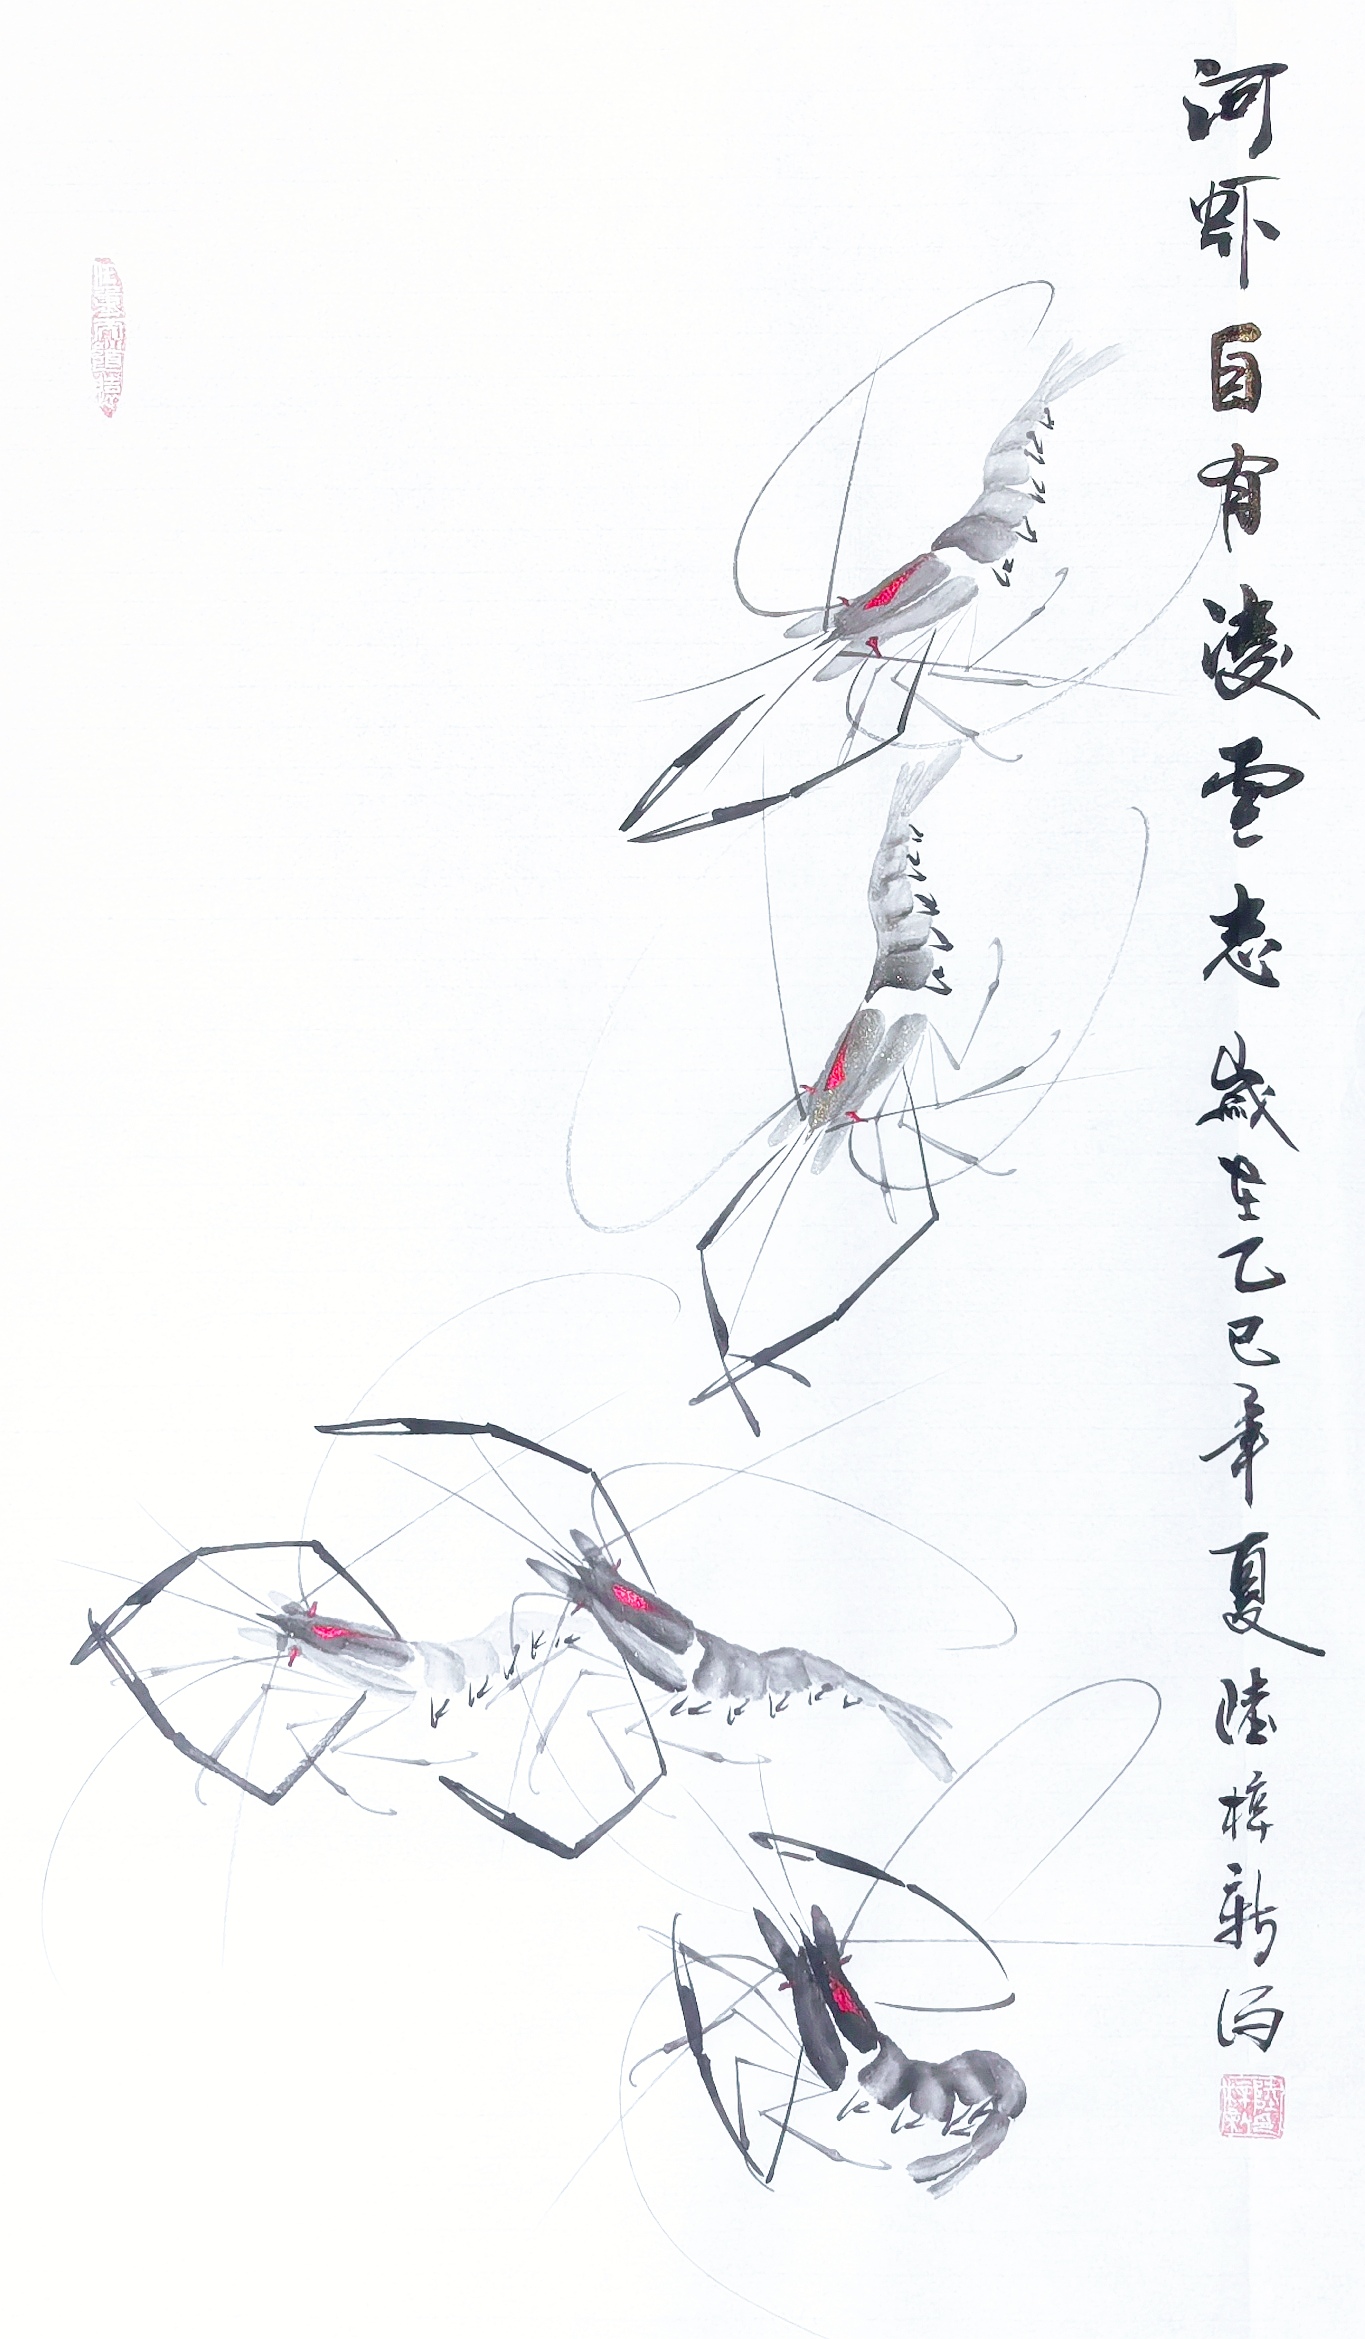 河虾自有凌云志 歲在乙巳年夏 陸梓新写